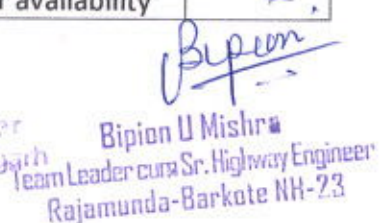 availability
Bipion
Bipion U Mishra
Team Leader cum Sr. Highway Engineer
Rajamunda-Barkote NH-23